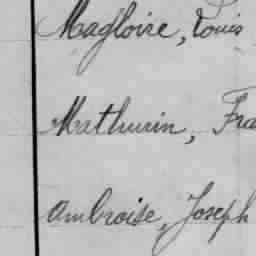 Magloire, Louis
Mathurin, Fra
Ambroise, Joseph